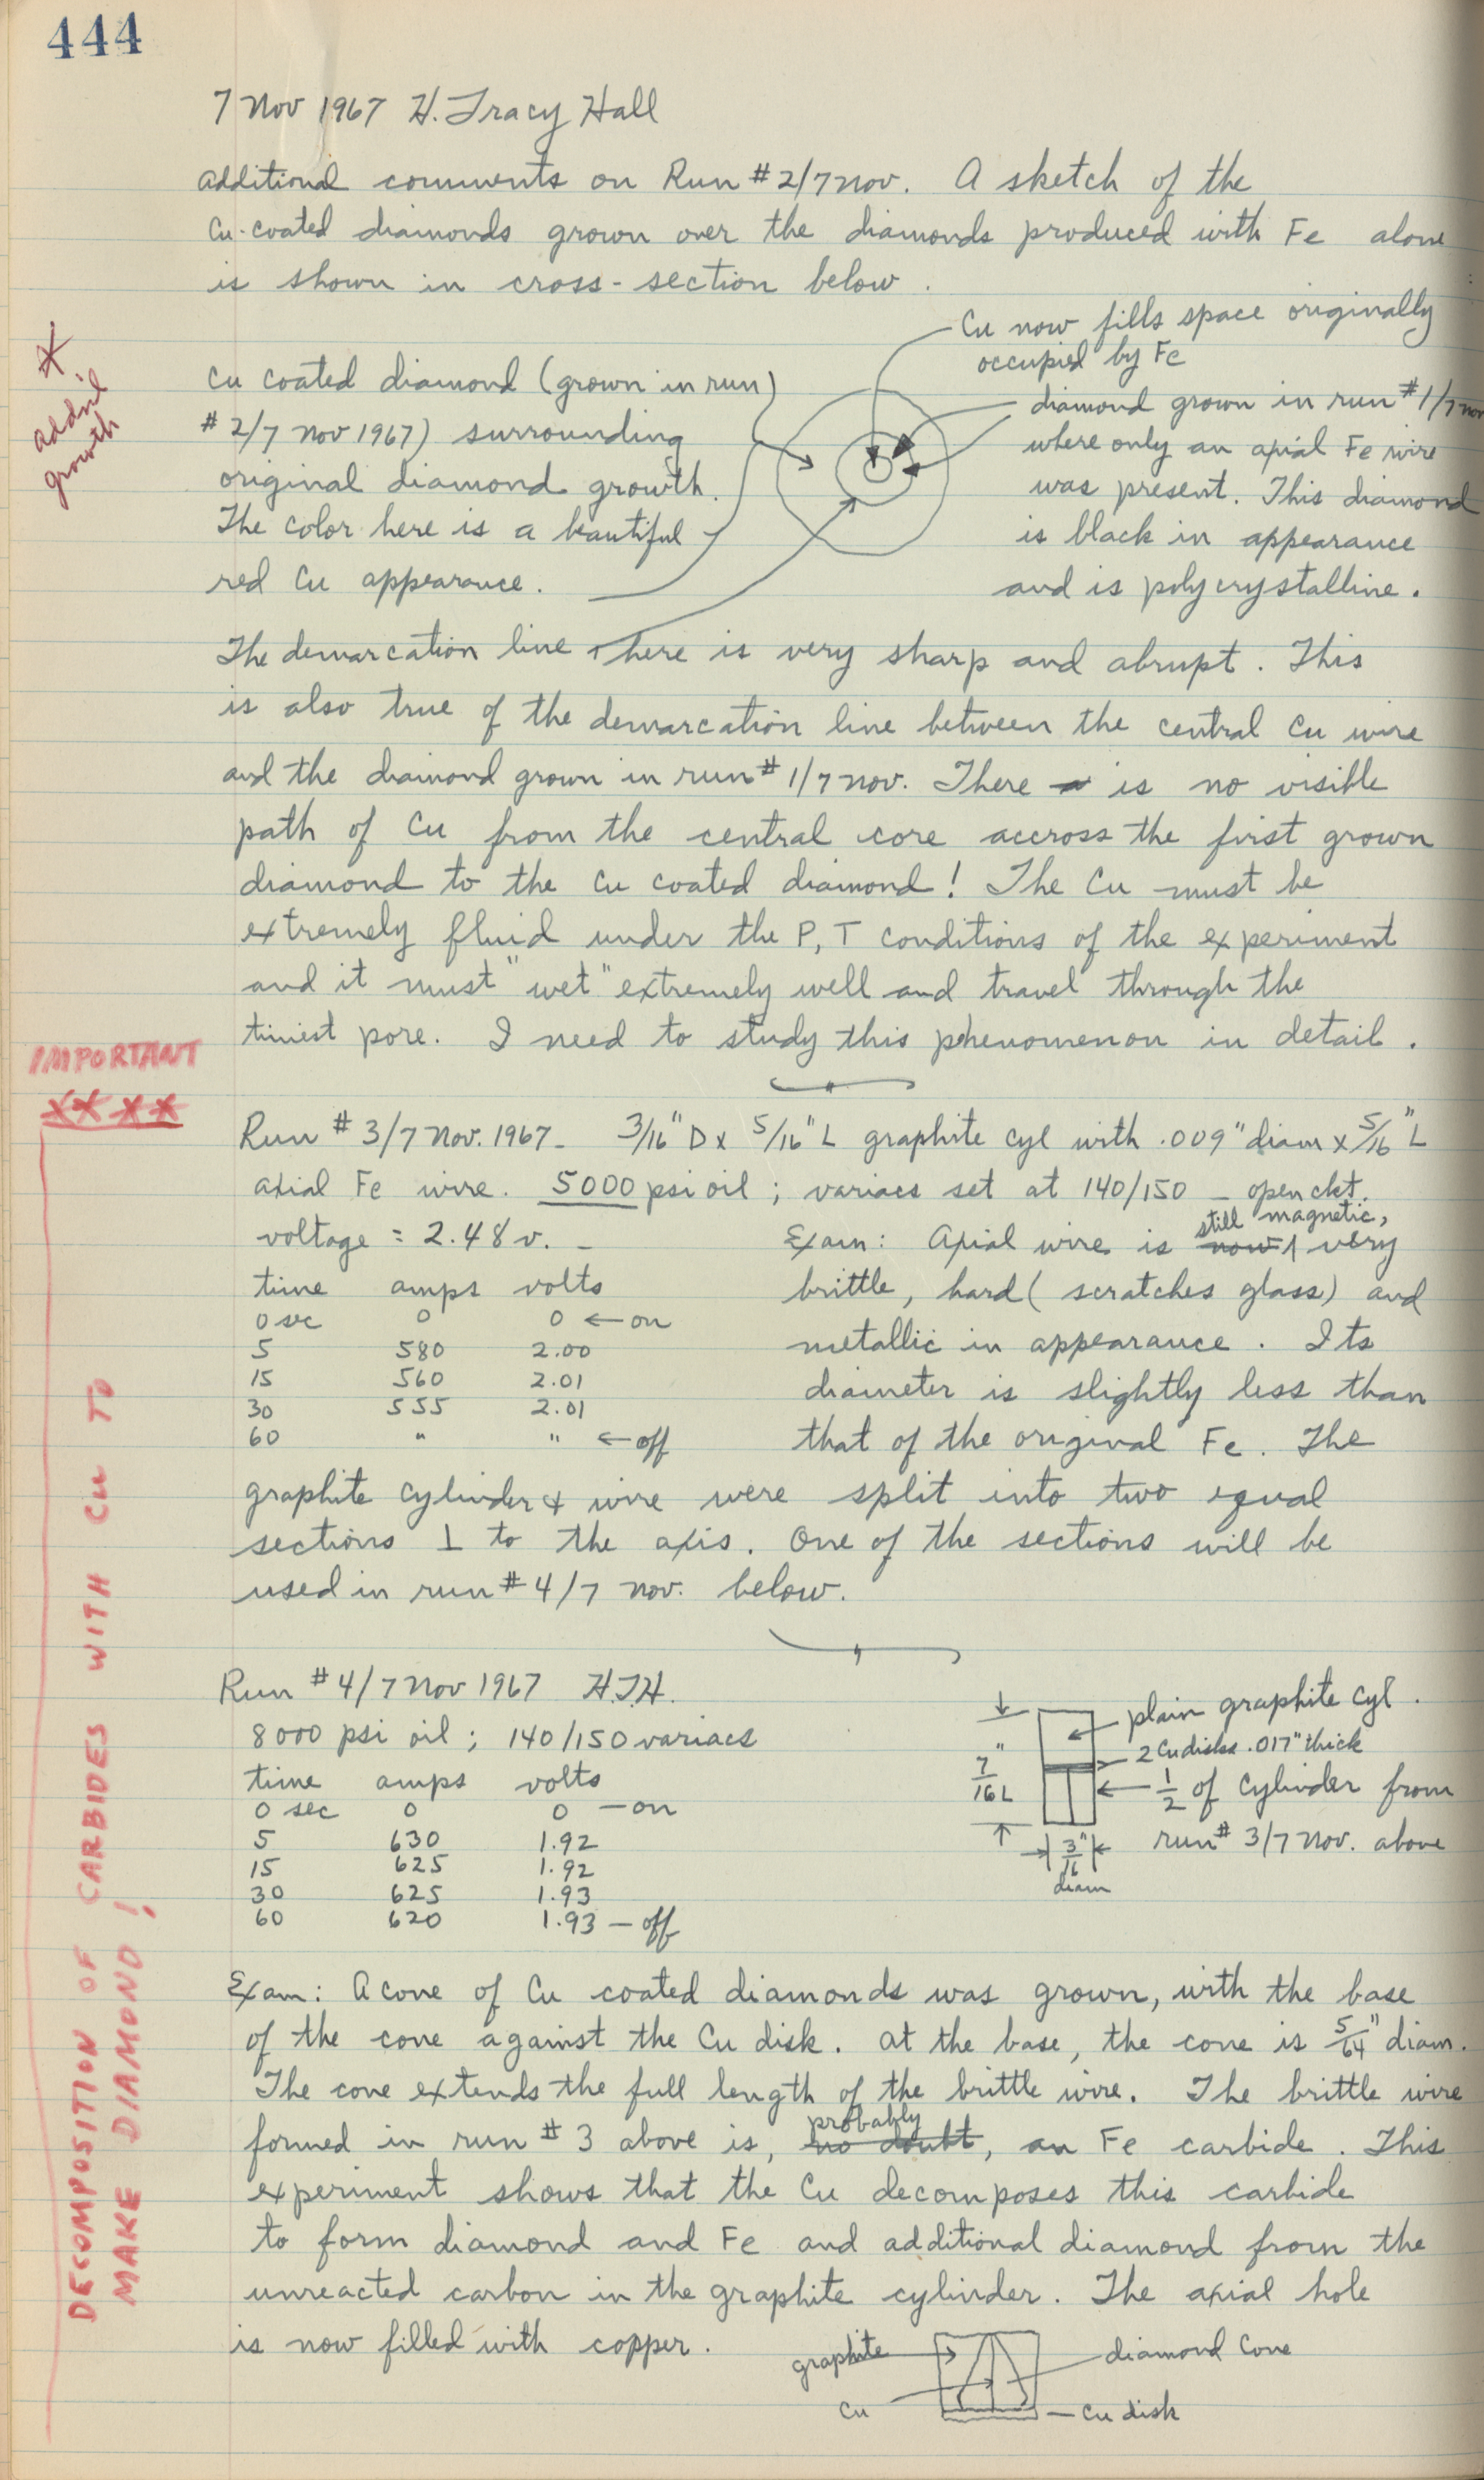 444
7 Nov 1967 H. Tracy Hall
additional comments on Run #2/7 nov. A sketch of the
Cu-coated diamonds grown over the diamonds produced with Fe alone
is shown in cross-section below.
Cu now fills space originally
occupied by Fe
*
addnl
growth
Cu coated diamond (grown in run
#2/7 nov 1967) surrounding
original diamond growth.
The color here is a beautiful
red Cu appearance.
diamond grown in run #1/7 nov
where only an axial Fe wire
was present. This diamond
is black in appearance
and is polycrystalline.
The demarcation line here is very sharp and abrupt. This
is also true of the demarcation line between the central Cu wire
and the diamond grown in run #1/7 nov. There is no visible
path of Cu from the central core accross the first grown
diamond to the Cu coated diamond! The Cu must be
extremely fluid under the P, T conditions of the experiment
and it must "wet" extremely well and travel through the
tiniest pore. I need to study this phenomenon in detail.
IMPORTANT
****
Run #3/7 Nov. 1967 - 3/16" D x 5/16" L graphite cyl with .009" diam x 5/16" L
axial Fe wire. 5000 psi oil; variacs set at 140/150 - open ckt.
voltage = 2.48 v. -
time amps volts
0 sec 0 0 ← on
5 580 2.00
15 560 2.01
30 555 2.01
60 " " ← off
Exam: Axial wire is now still magnetic, very
brittle, hard (scratches glass) and
metallic in appearance. Its
diameter is slightly less than
that of the original Fe. The
graphite cylinder & wire were split into two equal
sections ⊥ to the axis. One of the sections will be
used in run #4/7 nov. below.
Run #4/7 Nov 1967 H.T.H.
8000 psi oil; 140/150 variacs
time amps volts
0 sec 0 0 - on
5 630 1.92
15 625 1.92
30 625 1.93
60 620 1.93 - off
plain graphite cyl.
2 Cu disks .017" thick
1/2 of cylinder from
run #3/7 Nov. above
7/16" L
3/16"
diam
Exam: A cone of Cu coated diamonds was grown, with the base
of the cone against the Cu disk. at the base, the cone is 5/64" diam.
The cone extends the full length of the brittle wire. The brittle wire
formed in run #3 above is, no doubt probably, an Fe carbide. This
experiment shows that the Cu decomposes this carbide
to form diamond and Fe and additional diamond from the
unreacted carbon in the graphite cylinder. The axial hole
is now filled with copper.
graphite
Cu
diamond Cone
Cu disk
DECOMPOSITION OF CARBIDES WITH CU TO
MAKE DIAMOND!